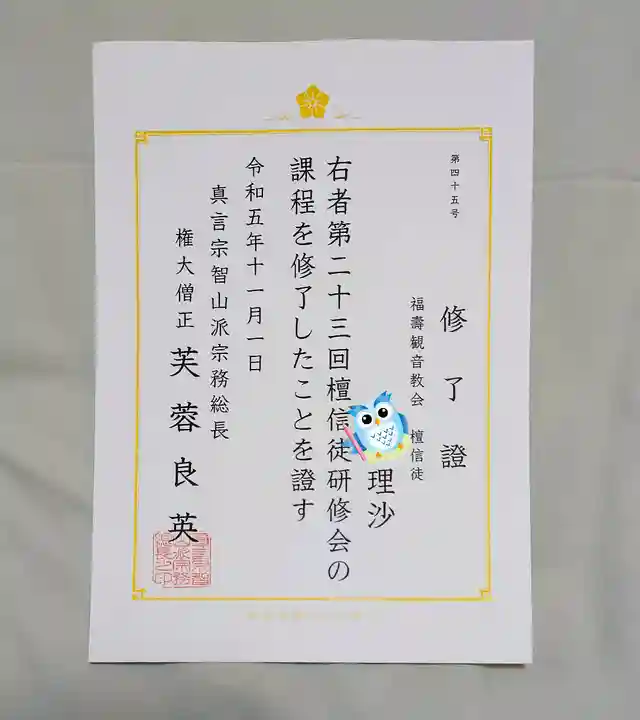 第四十五号
修了證
福壽観音教会 檀信徒
理沙
右者第二十三回檀信徒研修会の
課程を修了したことを證す
令和五年十一月一日
真言宗智山派宗務総長
権大僧正 芙蓉良英